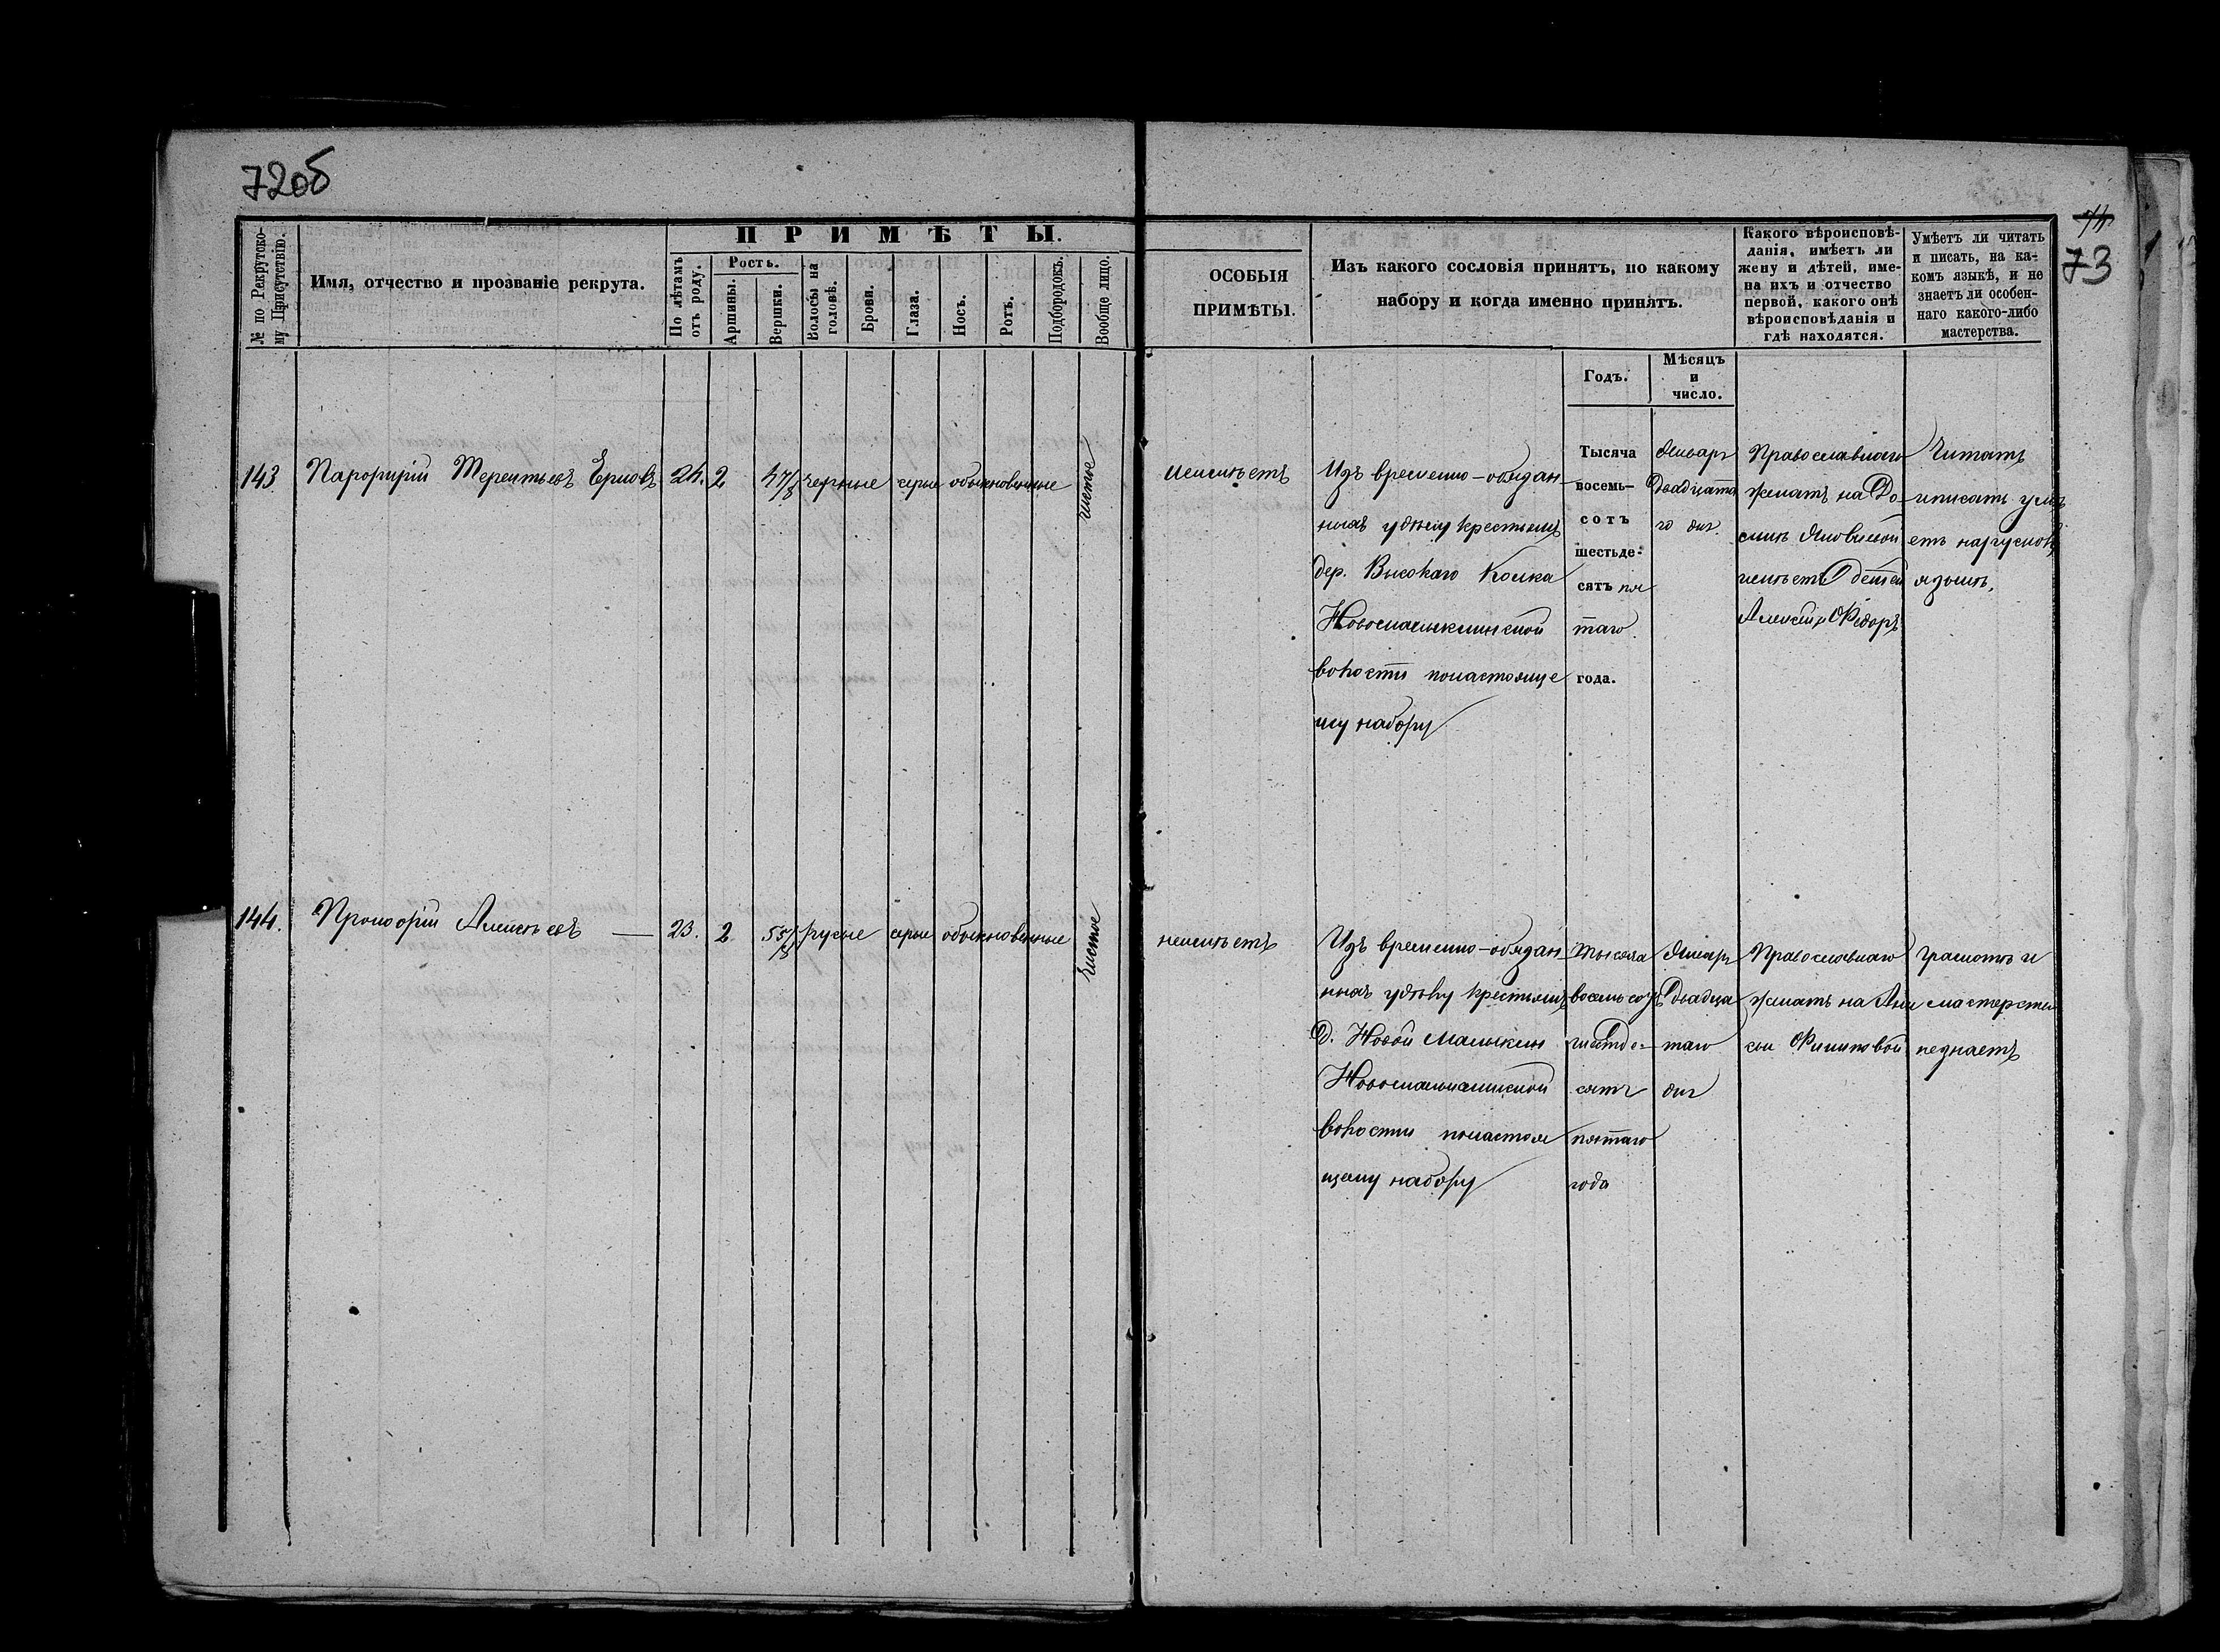 72об
74
73
№ по Рекрутско-
му Присутствію.
Имя, отчество и прозваніе рекрута.
ПРИМѢТЫ.
По лѣтамъ
отъ роду.
Ростъ.
Аршины.
Вершки.
Волосы на
головѣ.
Брови.
Глаза.
Носъ.
Ротъ.
Подбородокъ.
Вообще лицо.
ОСОБЫЯ
ПРИМѢТЫ.
Изъ какого сословія принятъ, по какому
набору и когда именно принятъ.
Годъ.
Мѣсяцъ
и
число.
Какого вѣроисповѣ-
данія, имѣетъ ли
жену и дѣтей, име-
на ихъ и отчество
первой, какого онѣ
вѣроисповѣданія и
гдѣ находятся.
Умѣетъ ли читать
и писать, на ка-
комъ языкѣ, и не
знаетъ ли особен-
наго какого-либо
мастерства.
143.
Парфирій Терентьевъ
24. 2 4 7/8 черные серые обыкновенные чистое
неимѣетъ
Изъ временно-обязан-
ныхъ удѣлу крестьянъ
дер. Высокаго Колка
Новомалыклинской
волости понастояще
му набору
Тысяча
восемь-
сотъ
шестьде-
сятъ пя
таго
года.
Январ
Двадцата
го дня
Православнаго
женатъ на До-
имѣетъ детей
Алексѣй, Федоръ
Читать
иписать умѣ
етъ нарусском
языкѣ.
144.
Прокофій Алексѣевъ —
23. 2 5 5/8 русые серые обыкновенные чистое
неимѣетъ
Изъ временно-обязан
ныхъ удѣлу крестьянъ
д. Новой Малыклы
Новомалыклинской
волости понастоя
щему набору
тысяча
восемьсотъ
шестьде-
сятъ
пятаго
года
Январ
Двадца
таго
дня
Православнаго
женатъ на Ани
сьи Филиповой
Грамотѣ и
мастерства
незнаетъ